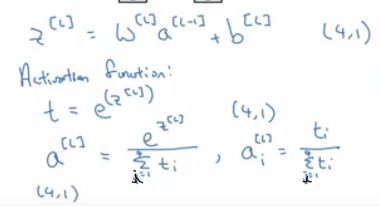 z^[L] = W^[L] a^[L-1] + b^[L] (4,1)
Activation function:
t = e^(z^[L]) (4,1)
a^[L] = e^{z^[L]} / ∑_{i=1}^{4} t_i , a_i^[L] = t_i / ∑_{i=1}^{4} t_i
(4,1)